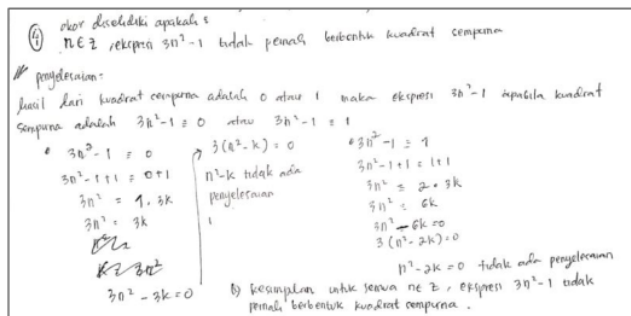 ④ akan diselidiki apakah :
n ∈ Z, ekspresi 3n²-1 tidak pernah berbentuk kuadrat sempurna
penyelesaian:
hasil dari kuadrat sempurna adalah 0 atau 1 maka ekspresi 3n²-1 apabila kuadrat
sempurna adalah 3n²-1 ≡ 0 atau 3n²-1 ≡ 1
• 3n²-1 ≡ 0
3n²-1+1 ≡ 0+1
3n² = 1.3k
3n² = 3k
3n² - 3k = 0
3(n²-k) = 0
n²-k tidak ada
penyelesaian
• 3n²-1 ≡ 1
3n²-1+1 = 1+1
3n² ≡ 2.3k
3n² = 6k
3n² - 6k = 0
3(n²-2k) = 0
n²-2k = 0 tidak ada penyelesaian
kesimpulan untuk semua n ∈ Z, ekspresi 3n²-1 tidak
pernah berbentuk kuadrat sempurna.